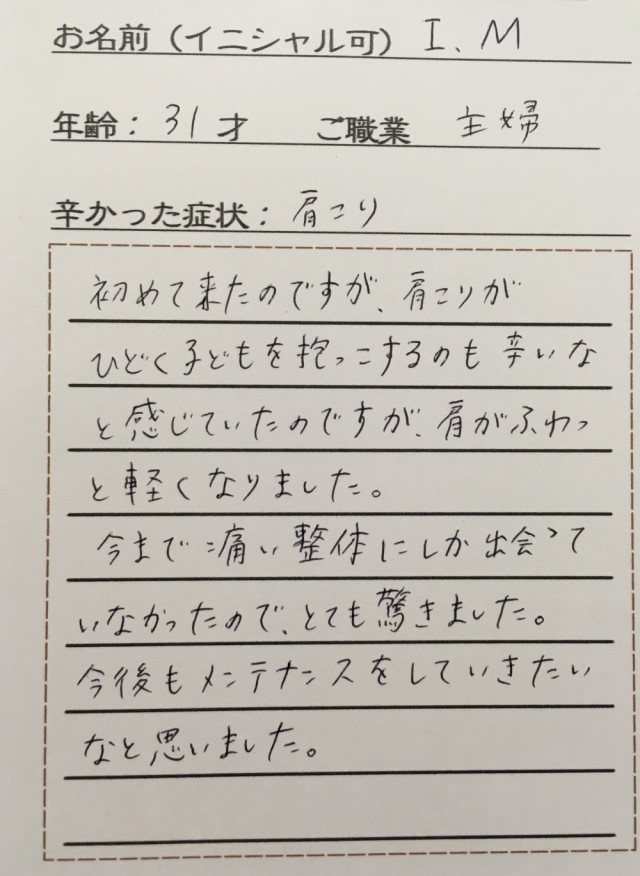 お名前（イニシャル可） I、M
年齢：31才 ご職業 主婦
辛かった症状：肩こり
初めて来たのですが、肩こりが
ひどく子どもを抱っこするのも辛いな
と感じていたのですが、肩がふわっ
と軽くなりました。
今まで痛い整体にしか出会って
いなかったので、とても驚きました。
今後もメンテナンスをしていきたい
なと思いました。